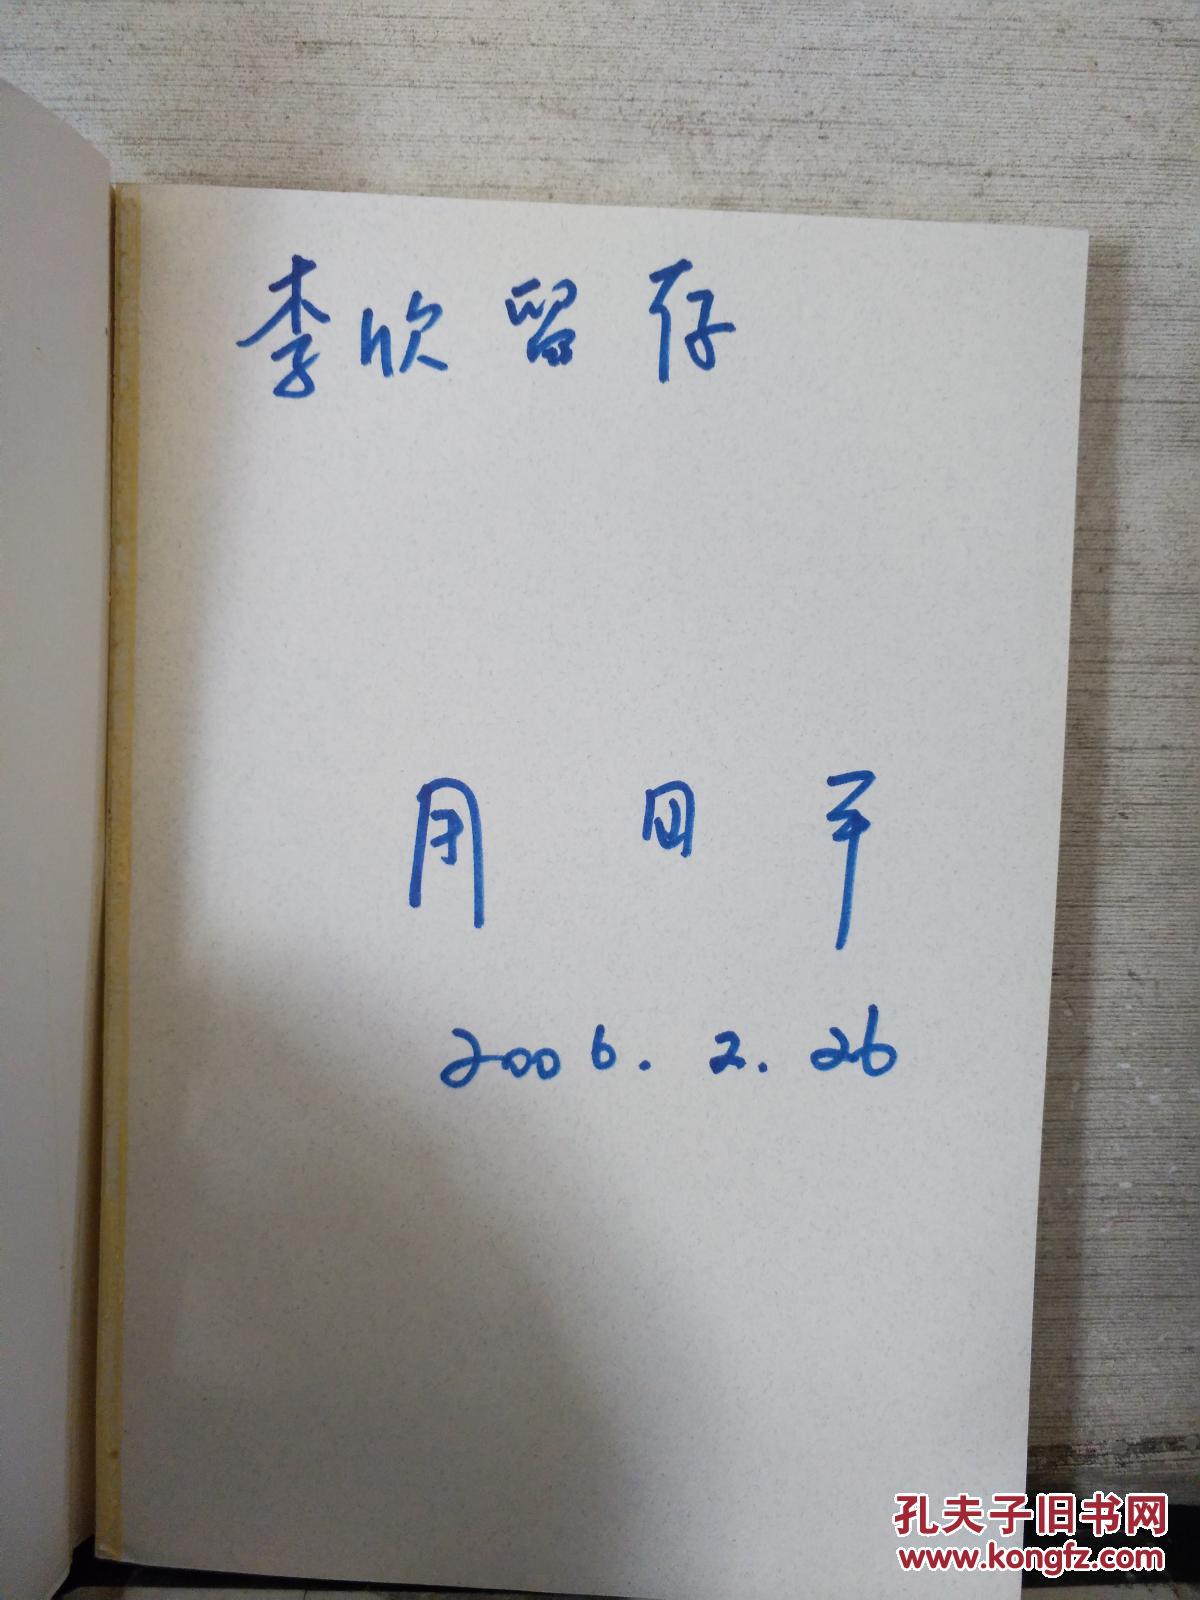 李欣留存
周国平
2006.2.26
孔夫子旧书网
www.kongfz.com